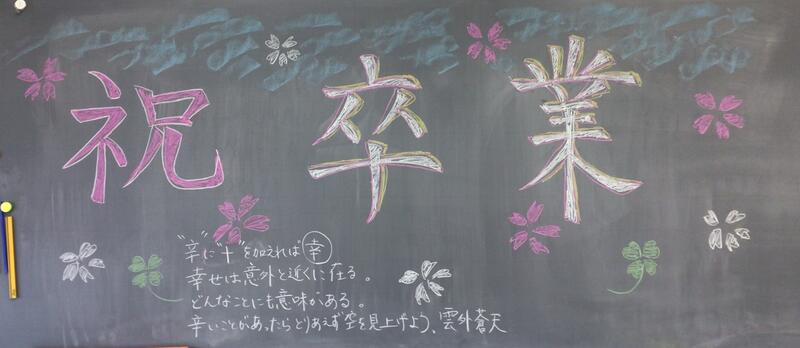 祝卒業
"辛"に"十"を加えれば幸
幸せは意外と近くに在る。
どんなことにも意味がある。
辛いことがあったらとりあえず空を見上げよう、雲外蒼天